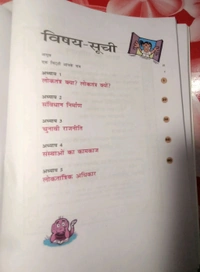 विषय-सूची
अध्याय 1
लोकतंत्र क्या? लोकतंत्र क्यों?
अध्याय 2
संविधान निर्माण
अध्याय 3
चुनावी राजनीति
अध्याय 4
संस्थाओं का कामकाज
अध्याय 5
लोकतांत्रिक अधिकार